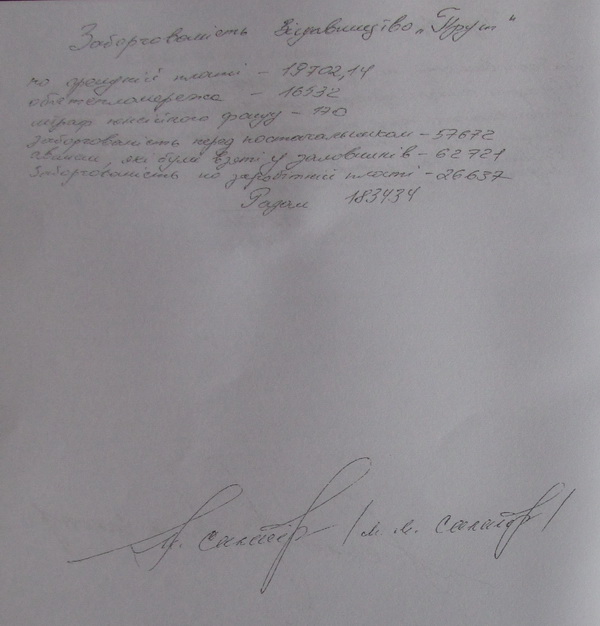 Заборгованість Видавництво „Прут"
по орендній платі – 19702,14
облтепломережа – 16532
штраф пенсійного фонду – 170
заборгованість перед постачальником – 57672
аванси, які були взяті у замовників – 62721
Заборгованість по заробітній платі – 26637
Разом 183434